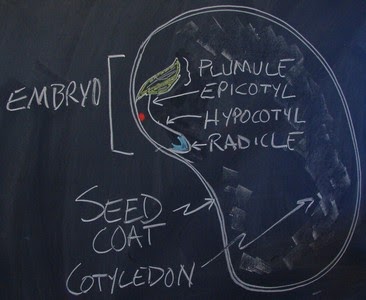 PLUMULE
EPICOTYL
EMBRYO
HYPOCOTYL
RADICLE
SEED
COAT
COTYLEDON